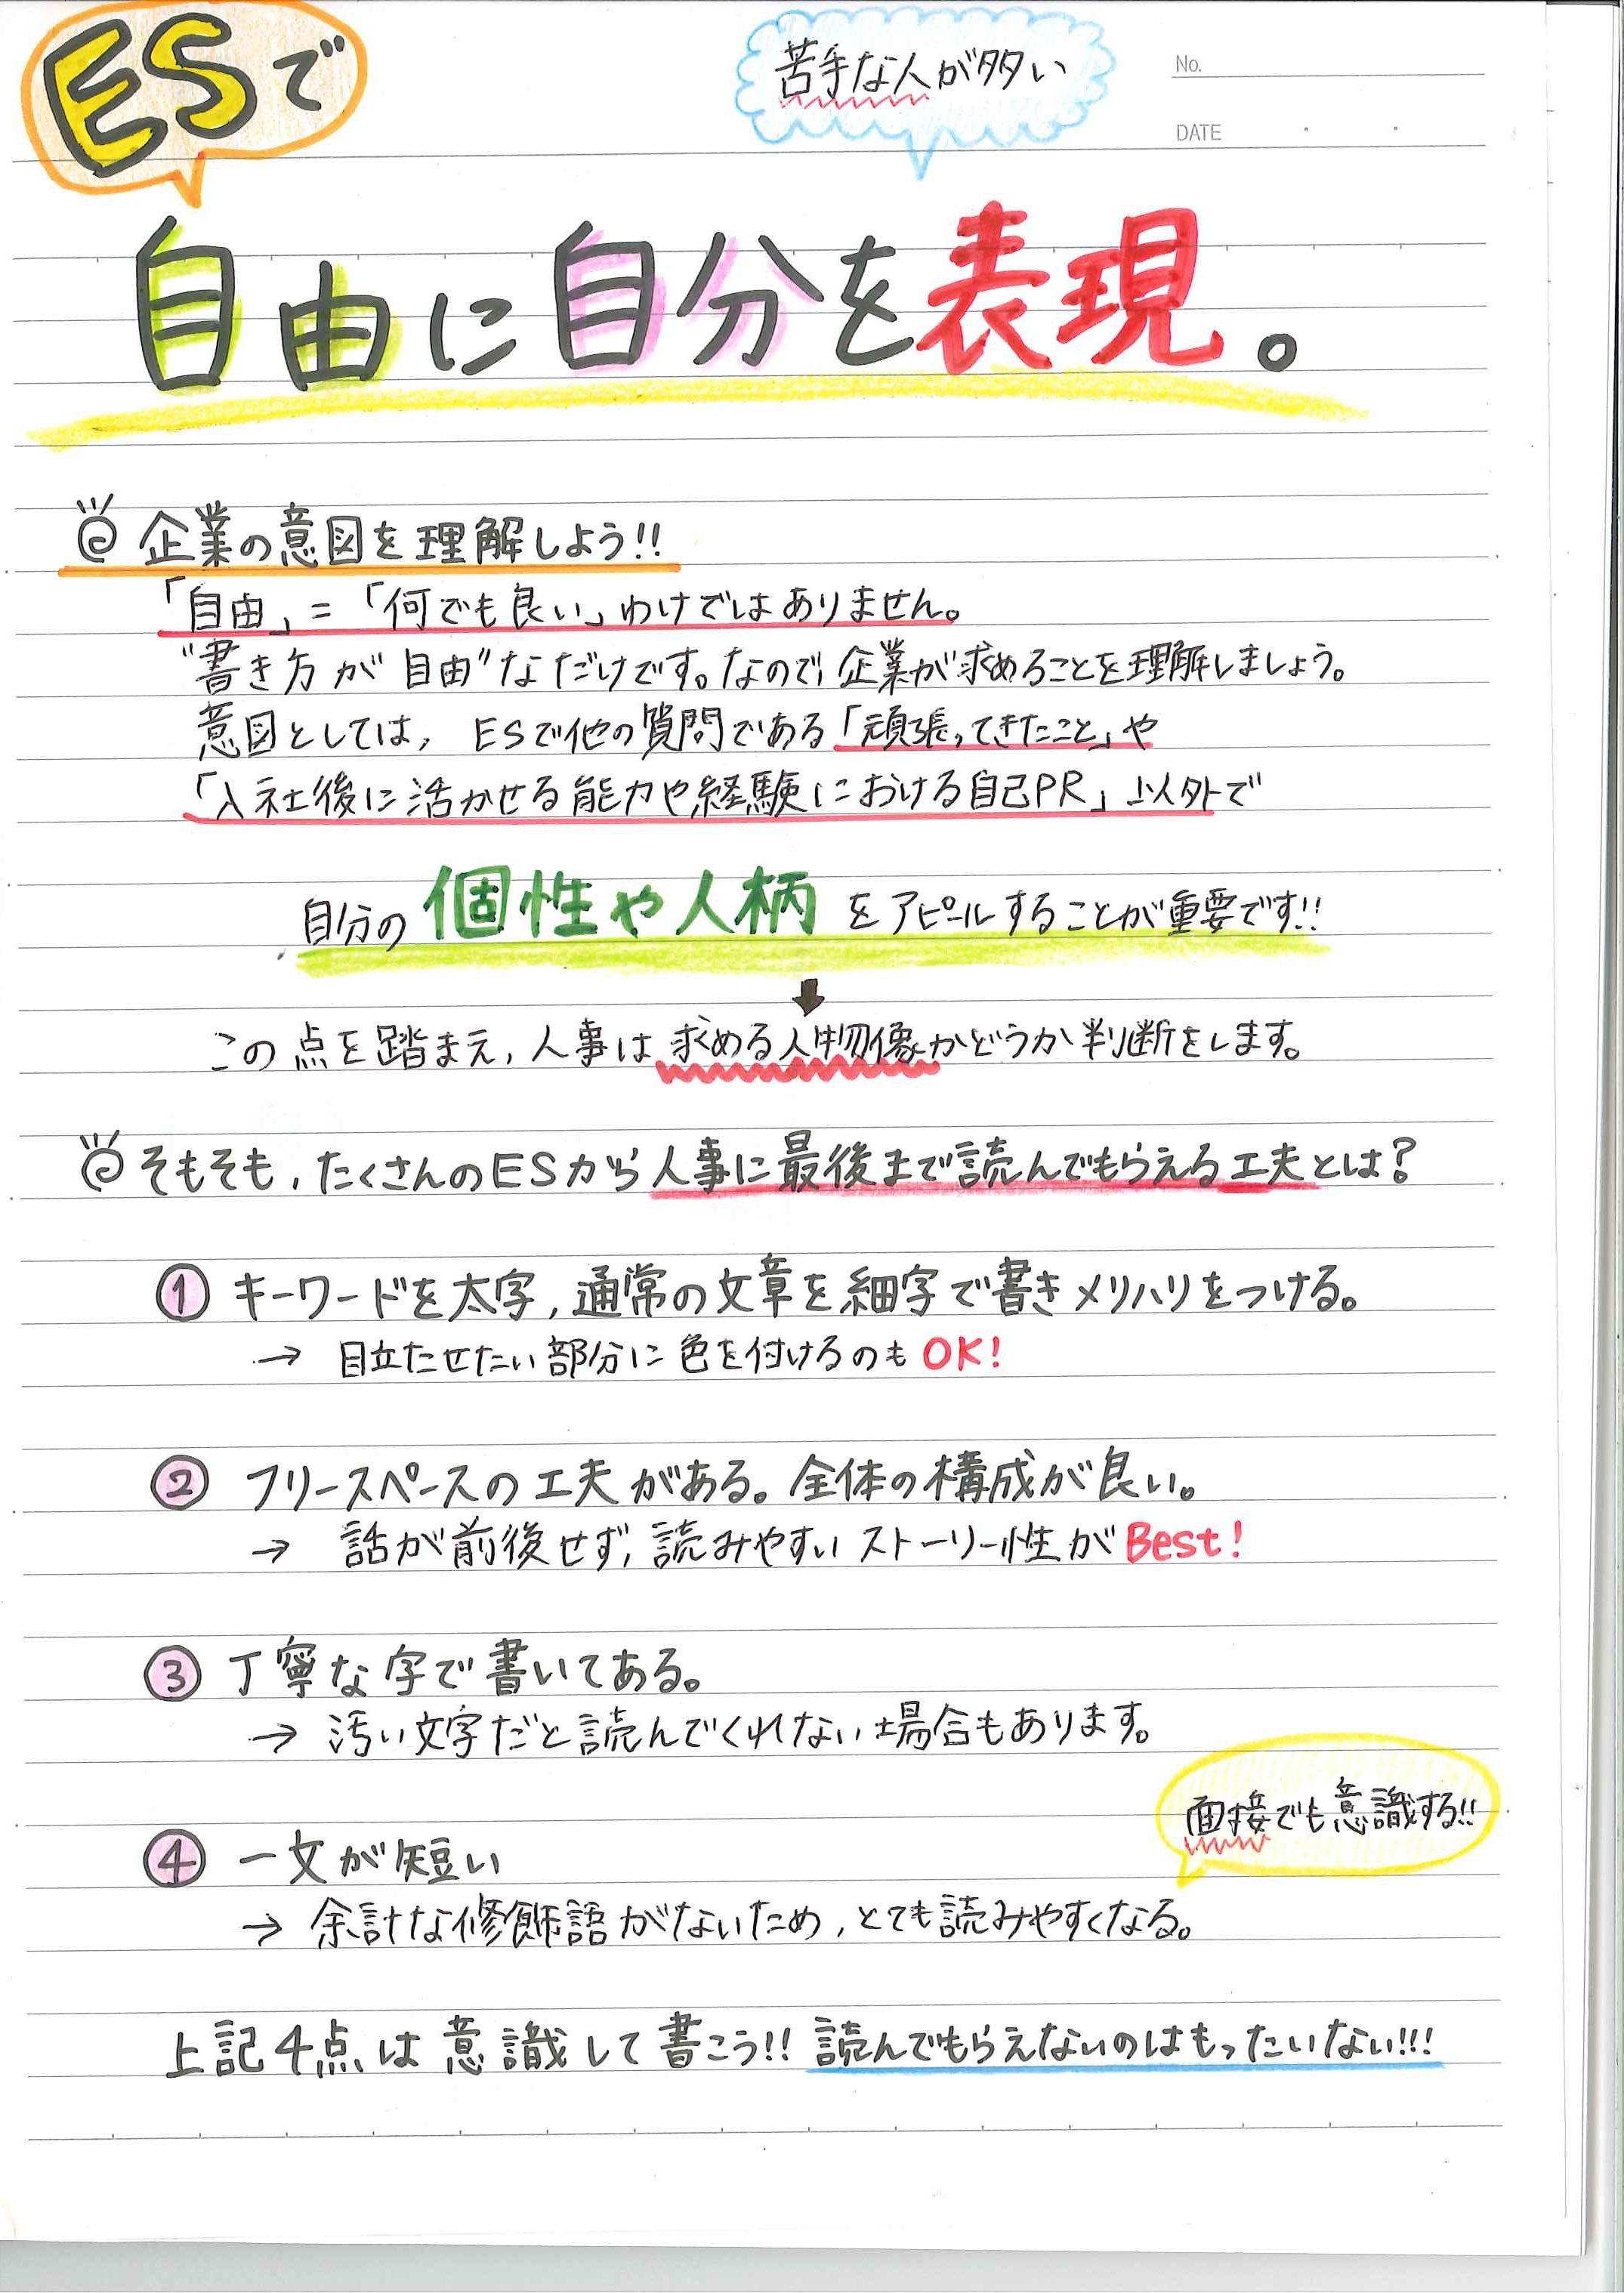 ESで
苦手な人が多い
No.
DATE
自由に自分を表現。
企業の意図を理解しよう!!
「自由」=「何でも良い」わけではありません。
"書き方が自由"なだけです。なので、企業が求めることを理解しましょう。
意図としては, ESで他の質問である「頑張ってきたこと」や
「入社後に活かせる能力や経験における自己PR」以外で
自分の個性や人柄をアピールすることが重要です!!
この点を踏まえ, 人事は求める人物像かどうか判断をします。
そもそも, たくさんのESから人事に最後まで読んでもらえる工夫とは?
① キーワードを太字, 通常の文章を細字で書きメリハリをつける。
→ 目立たせたい部分に色を付けるのもOK!
② フリースペースの工夫がある。全体の構成が良い。
→ 話が前後せず, 読みやすいストーリー性がBest!
③ 丁寧な字で書いてある。
→ 汚い文字だと読んでくれない場合もあります。
面接でも意識する!!
④ 一文が短い
→ 余計な修飾語がないため, とても読みやすくなる。
上記4点は意識して書こう!! 読んでもらえないのはもったいない!!!